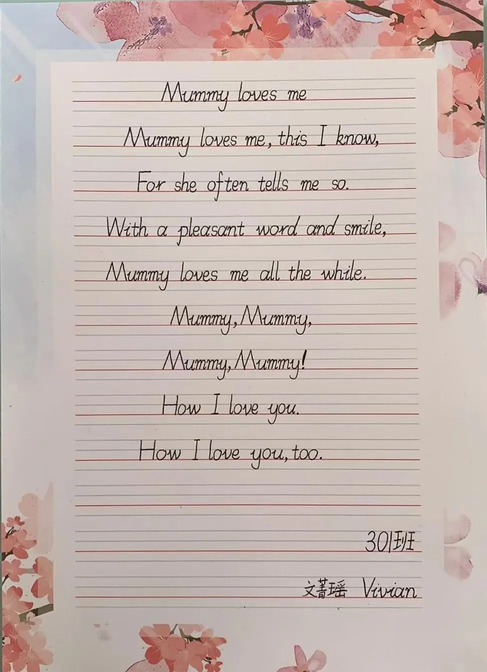 Mummy loves me
Mummy loves me, this I know,
For she often tells me so.
With a pleasant word and smile,
Mummy loves me all the while.
Mummy, Mummy,
Mummy, Mummy!
How I love you.
How I love you, too.
301班
文菁瑶 Vivian